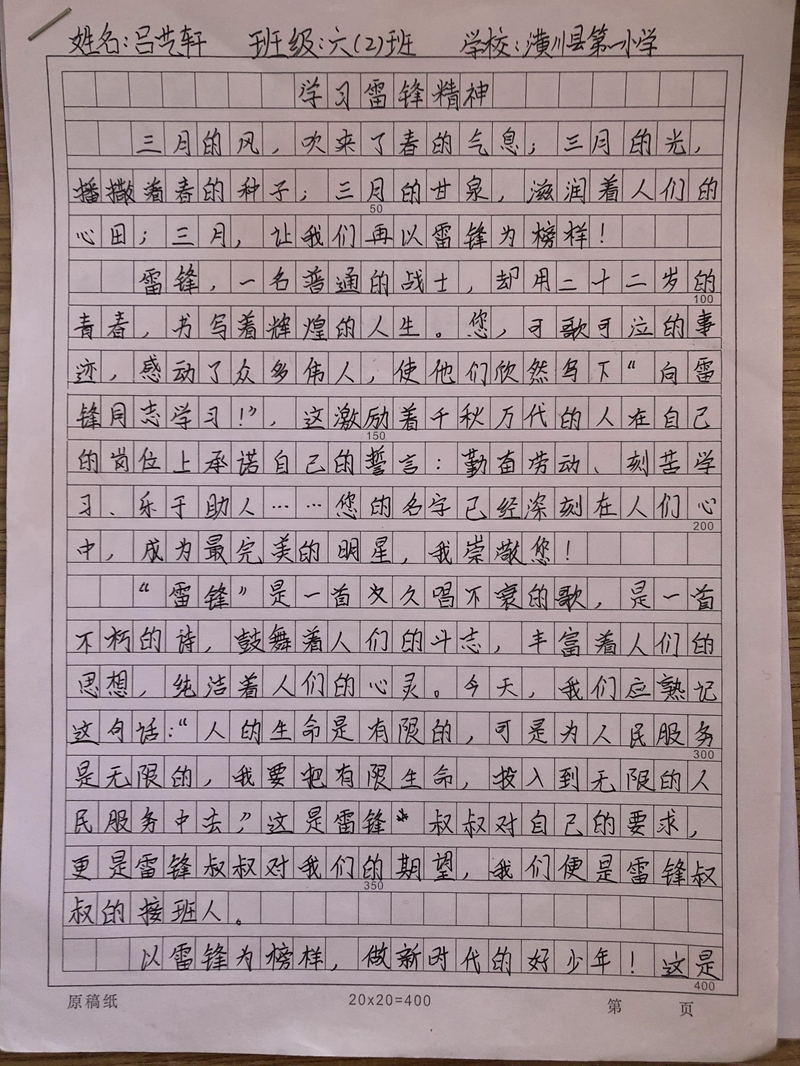 姓名:吕芷轩 班级:六(2)班 学校:潢川县第一小学
学习雷锋精神
三月的风，吹来了春的气息；三月的光，
播撒着春的种子；三月的甘泉，滋润着人们的
50
心田；三月，让我们再以雷锋为榜样！
雷锋，一名普通的战士，却用二十二岁的
100
青春，书写着辉煌的人生。您，可歌可泣的事
迹，感动了众多伟人，使他们欣然写下“向雷
锋同志学习！”，这激励着千秋万代的人在自己
150
的岗位上承诺自己的誓言：勤奋劳动、刻苦学
习、乐于助人……您的名字已经深刻在人们心
200
中，成为最完美的明星，我崇敬您！
“雷锋”是一首久久唱不衰的歌，是一首
不朽的诗，鼓舞着人们的斗志，丰富着人们的
思想，纯洁着人们的心灵。今天，我们应熟记
这句话：“人的生命是有限的，可是为人民服务
300
是无限的，我要把有限生命，投入到无限的人
民服务中去，”这是雷锋 叔叔对自己的要求，
更是雷锋叔叔对我们的期望，我们便是雷锋叔
350
叔的接班人。
以雷锋为榜样，做新时代的好少年！这是
400
原稿纸 20x20=400 第 页